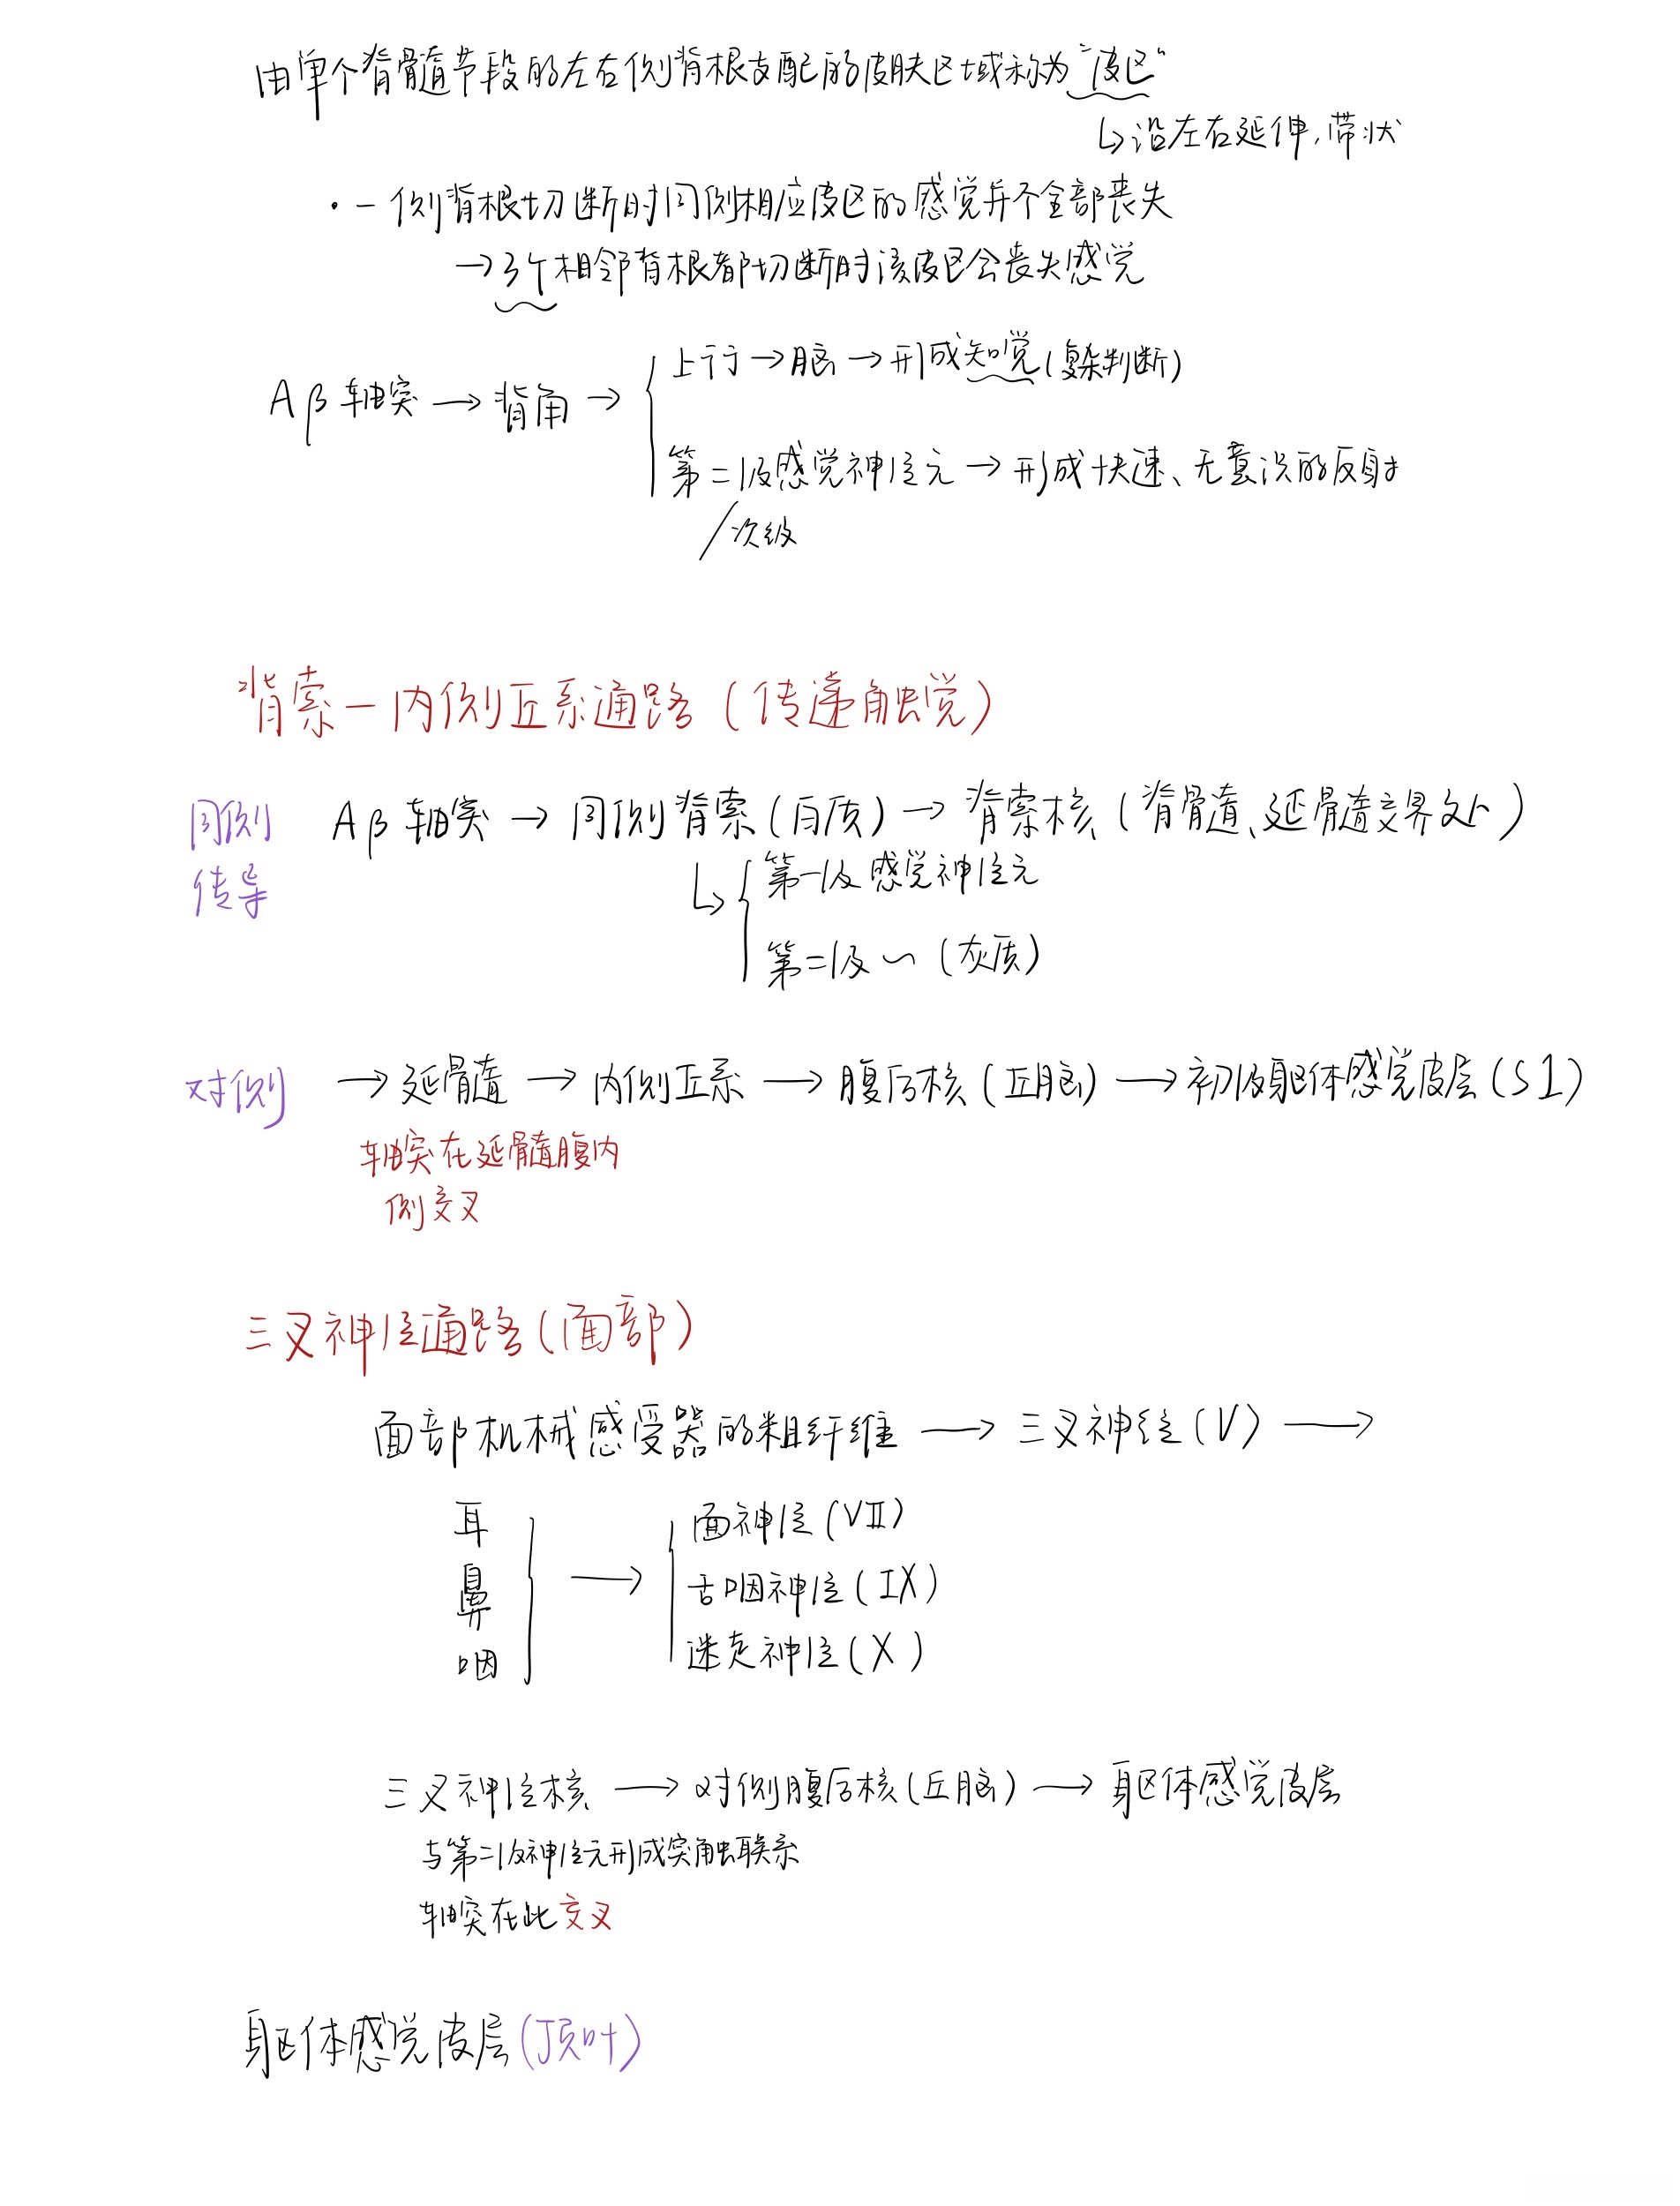 由单个脊髓节段的左右侧背根支配的皮肤区域称为“皮区”
↳沿左右延伸,带状
·一侧背根切断时同侧相应皮区的感觉并不全部丧失
→3个相邻背根都切断时该皮区会丧失感觉
Aβ轴突→背角→
上行→脑→形成知觉(复杂判断)
第二级感觉神经元→形成快速、无意识的反射
/次级
背索-内侧丘系通路(传递触觉)
同侧传导
Aβ轴突→同侧背索(白质)→背索核(脊骨道、延骨髓交界处)
↳第一级感觉神经元
第二级~(灰质)
对侧
→延骨髓→内侧丘系→腹后核(丘脑)→初级躯体感觉皮层(S1)
轴突在延骨髓腹内
侧交叉
三叉神经通路(面部)
面部机械感受器的粗纤维→三叉神经(V)→
耳
鼻
咽
→
面神经(VII)
舌咽神经(IX)
迷走神经(X)
三叉神经核→对侧腹后核(丘脑)→躯体感觉皮层
与第二级神经元形成突触联系
轴突在此交叉
躯体感觉皮层(顶叶)